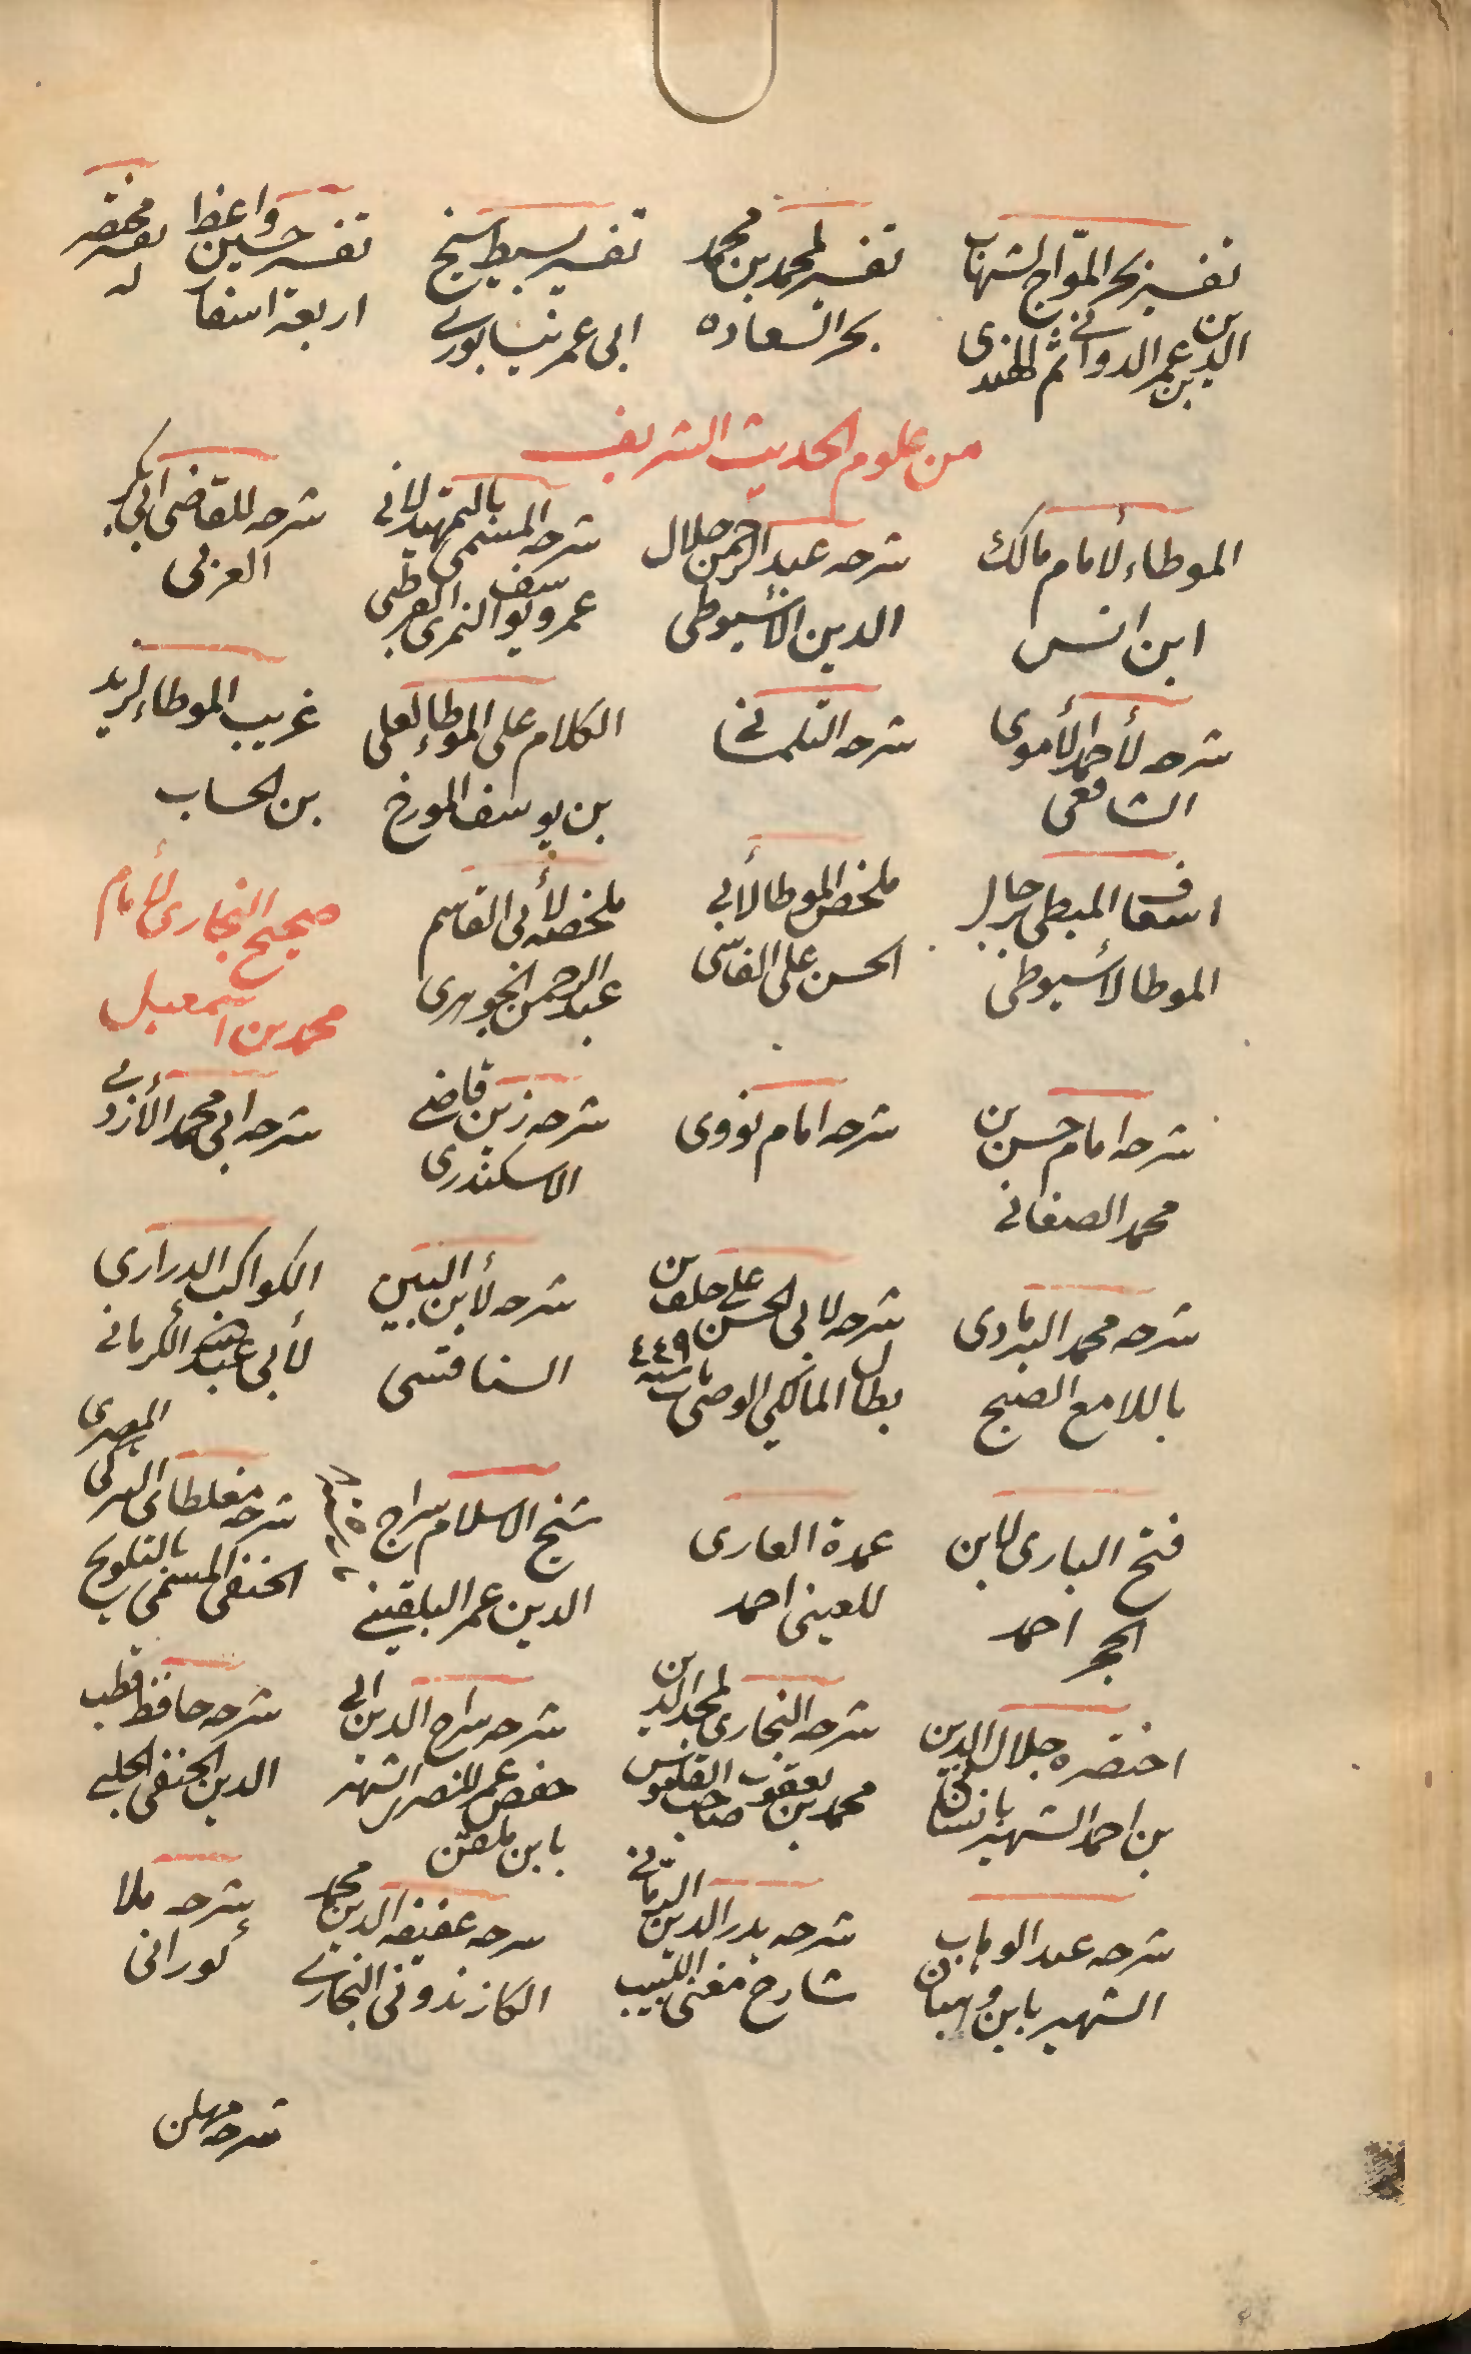 تفسير بحر المّواج لشهاب
الدين بن عمر الدواني ثم الهندى
تفسير لمحمد بن محمد
بحر السعاده
تفسير بسيط شيخ
ابى عمر نيسابورى
تفسير حسين واعظ
اربعة اسفار
مختصر
له
من علوم الحديث الشريف
الموطاء لأمام مالك
ابن انس
شرحه عبد الرحمن جلال
الدين الأسيوطى
شرحه المسمى بالتمهيد لابى
عمرو يوسف النمرى القرطبى
شرحه للقاضى ابى بكر
العربى
شرحه لأحمد الأموى
الشافعى
شرحه التلمسانى
الكلام على الموطاء لعلى
بن يوسف المورخ
غريب الموطاء لزيد
بن الحساب
اسعاف المبطى برجال
الموطا لأسيوطى
ملخص الموطا لأبى
الحسن على الفاسى
ملخصه لأبى القاسم
عبد الرحمن الجوهرى
صحيح البخارى لأمام
محمد بن اسمعيل
شرحه امام حسن بن
محمد الصغانى
شرحه امام نووى
شرحه زين قاضى
الاسكندرى
شرحه ابى محمد الأزدى
شرحه محمد البرمادى
باللامع الصبيح
شرحه لابى الحسن على خلف بن
بطال المالكى المتوفى سنة ٤٤٩
شرحه لأبن التين
السفاقسى
الكواكب الدرارى
لأبى عبد الله الكرمانى
فتح البارى لابن
الحجر احمد
عمدة القارى
للعينى احمد
شيخ الاسلام سراج
الدين عمر البلقينى
شرحه مغلطاى التركى المصرى
الحنفى المسمى بالتلويح
اختصره جلال الدين
بن احمد الشهير بالتبانى
شرحه البخارى لمجد الدين
محمد بن يعقوب صاحب القاموس
شرحه سراج الدين ابى
حفص عمر المصرى الشهير
بابن ملقن
شرحه حافظ قطب
الدين الحنفى الحلبى
شرحه عبد الوهاب
الشهير بابن وهبان
شرحه بدر الدين
شارح مغنى اللبيب
شرحه عفيف الدين محمد
الكازرونى البخارى
شرحه ملا
كورانى
شرحه مهلب